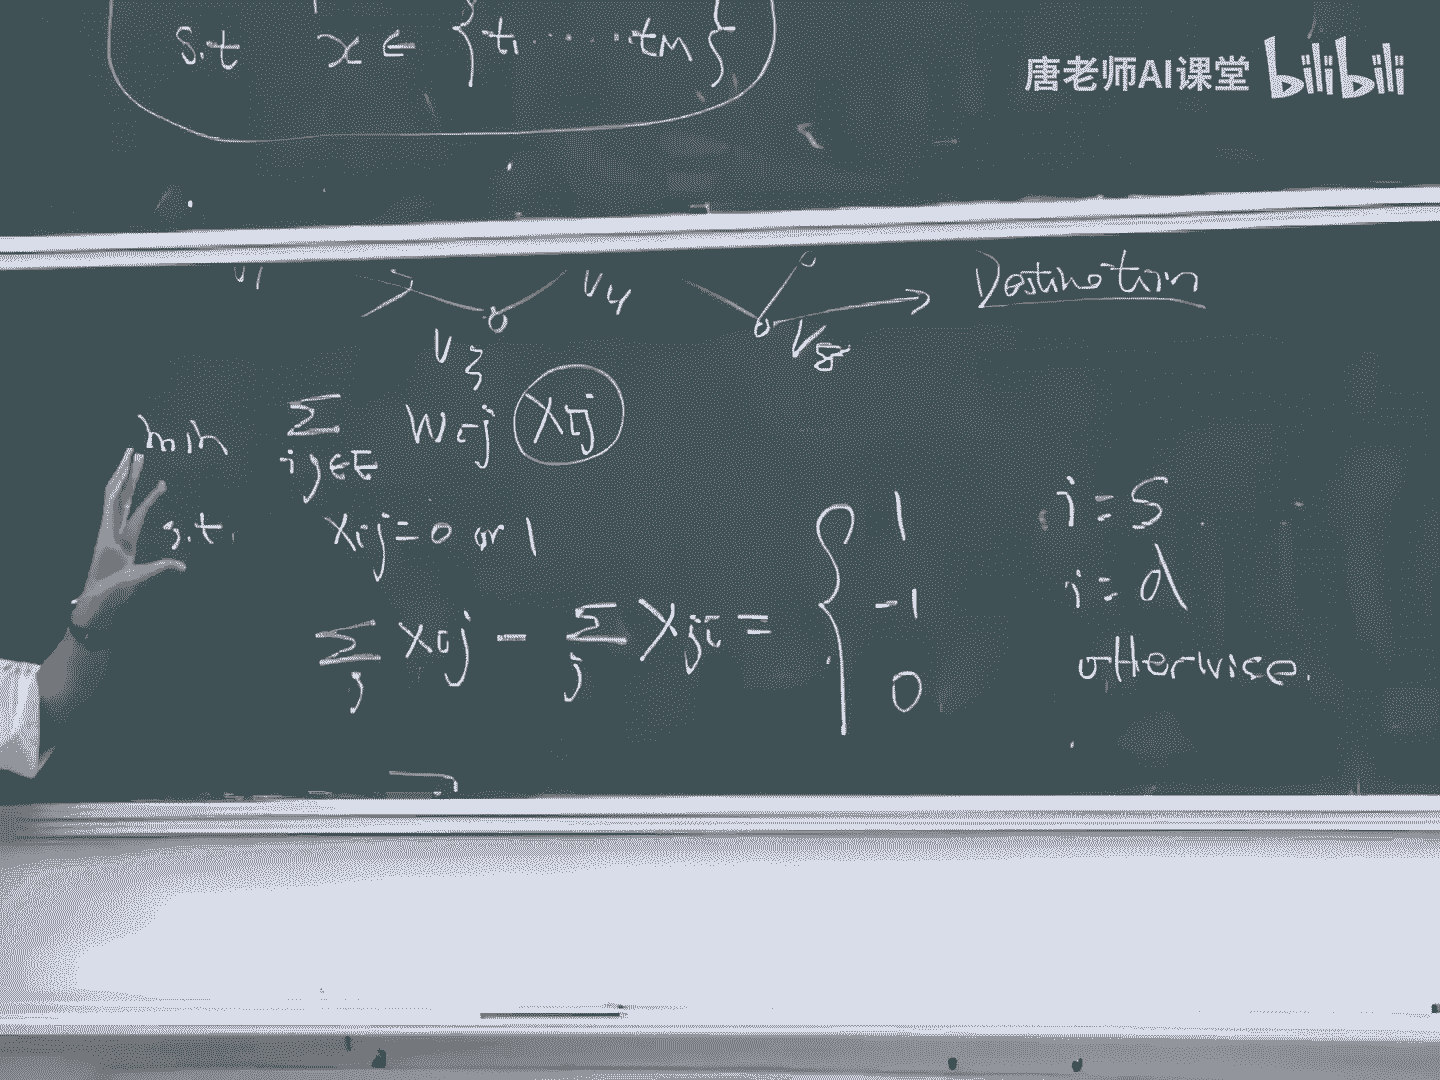 s.t x ∈ {t₁ ...... t_M}
唐老师AI课堂 bilibili
V₁ V₃ V₄ V₈ Destination
min Σ_{ij∈E} w_{ij} x_{ij}
s.t. x_{ij} = 0 or 1
Σ_j x_{ij} - Σ_j x_{ji} = { 1 i=s
-1 i=d
0 otherwise.